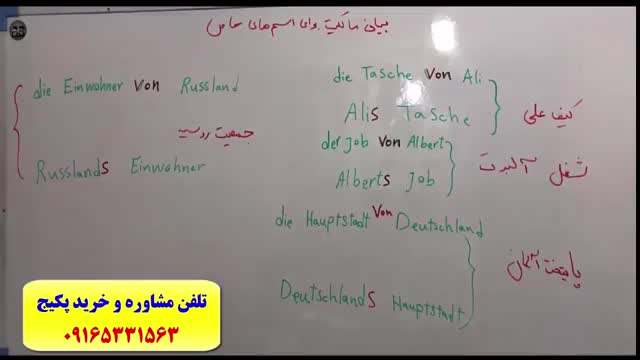 بیان مالکیت برای اسم های خاص
die Tasche von Ali
Alis Tasche
کیف علی
der Job von Albert
Alberts Job
شغل آلبرت
die Hauptstadt von Deutschland
Deutschlands Hauptstadt
پایتخت آلمان
die Einwohner von Russland
جمعیت روسیه
Russlands Einwohner
تلفن مشاوره و خرید پکیج
۰۹۱۶۵۳۳۱۵۶۳